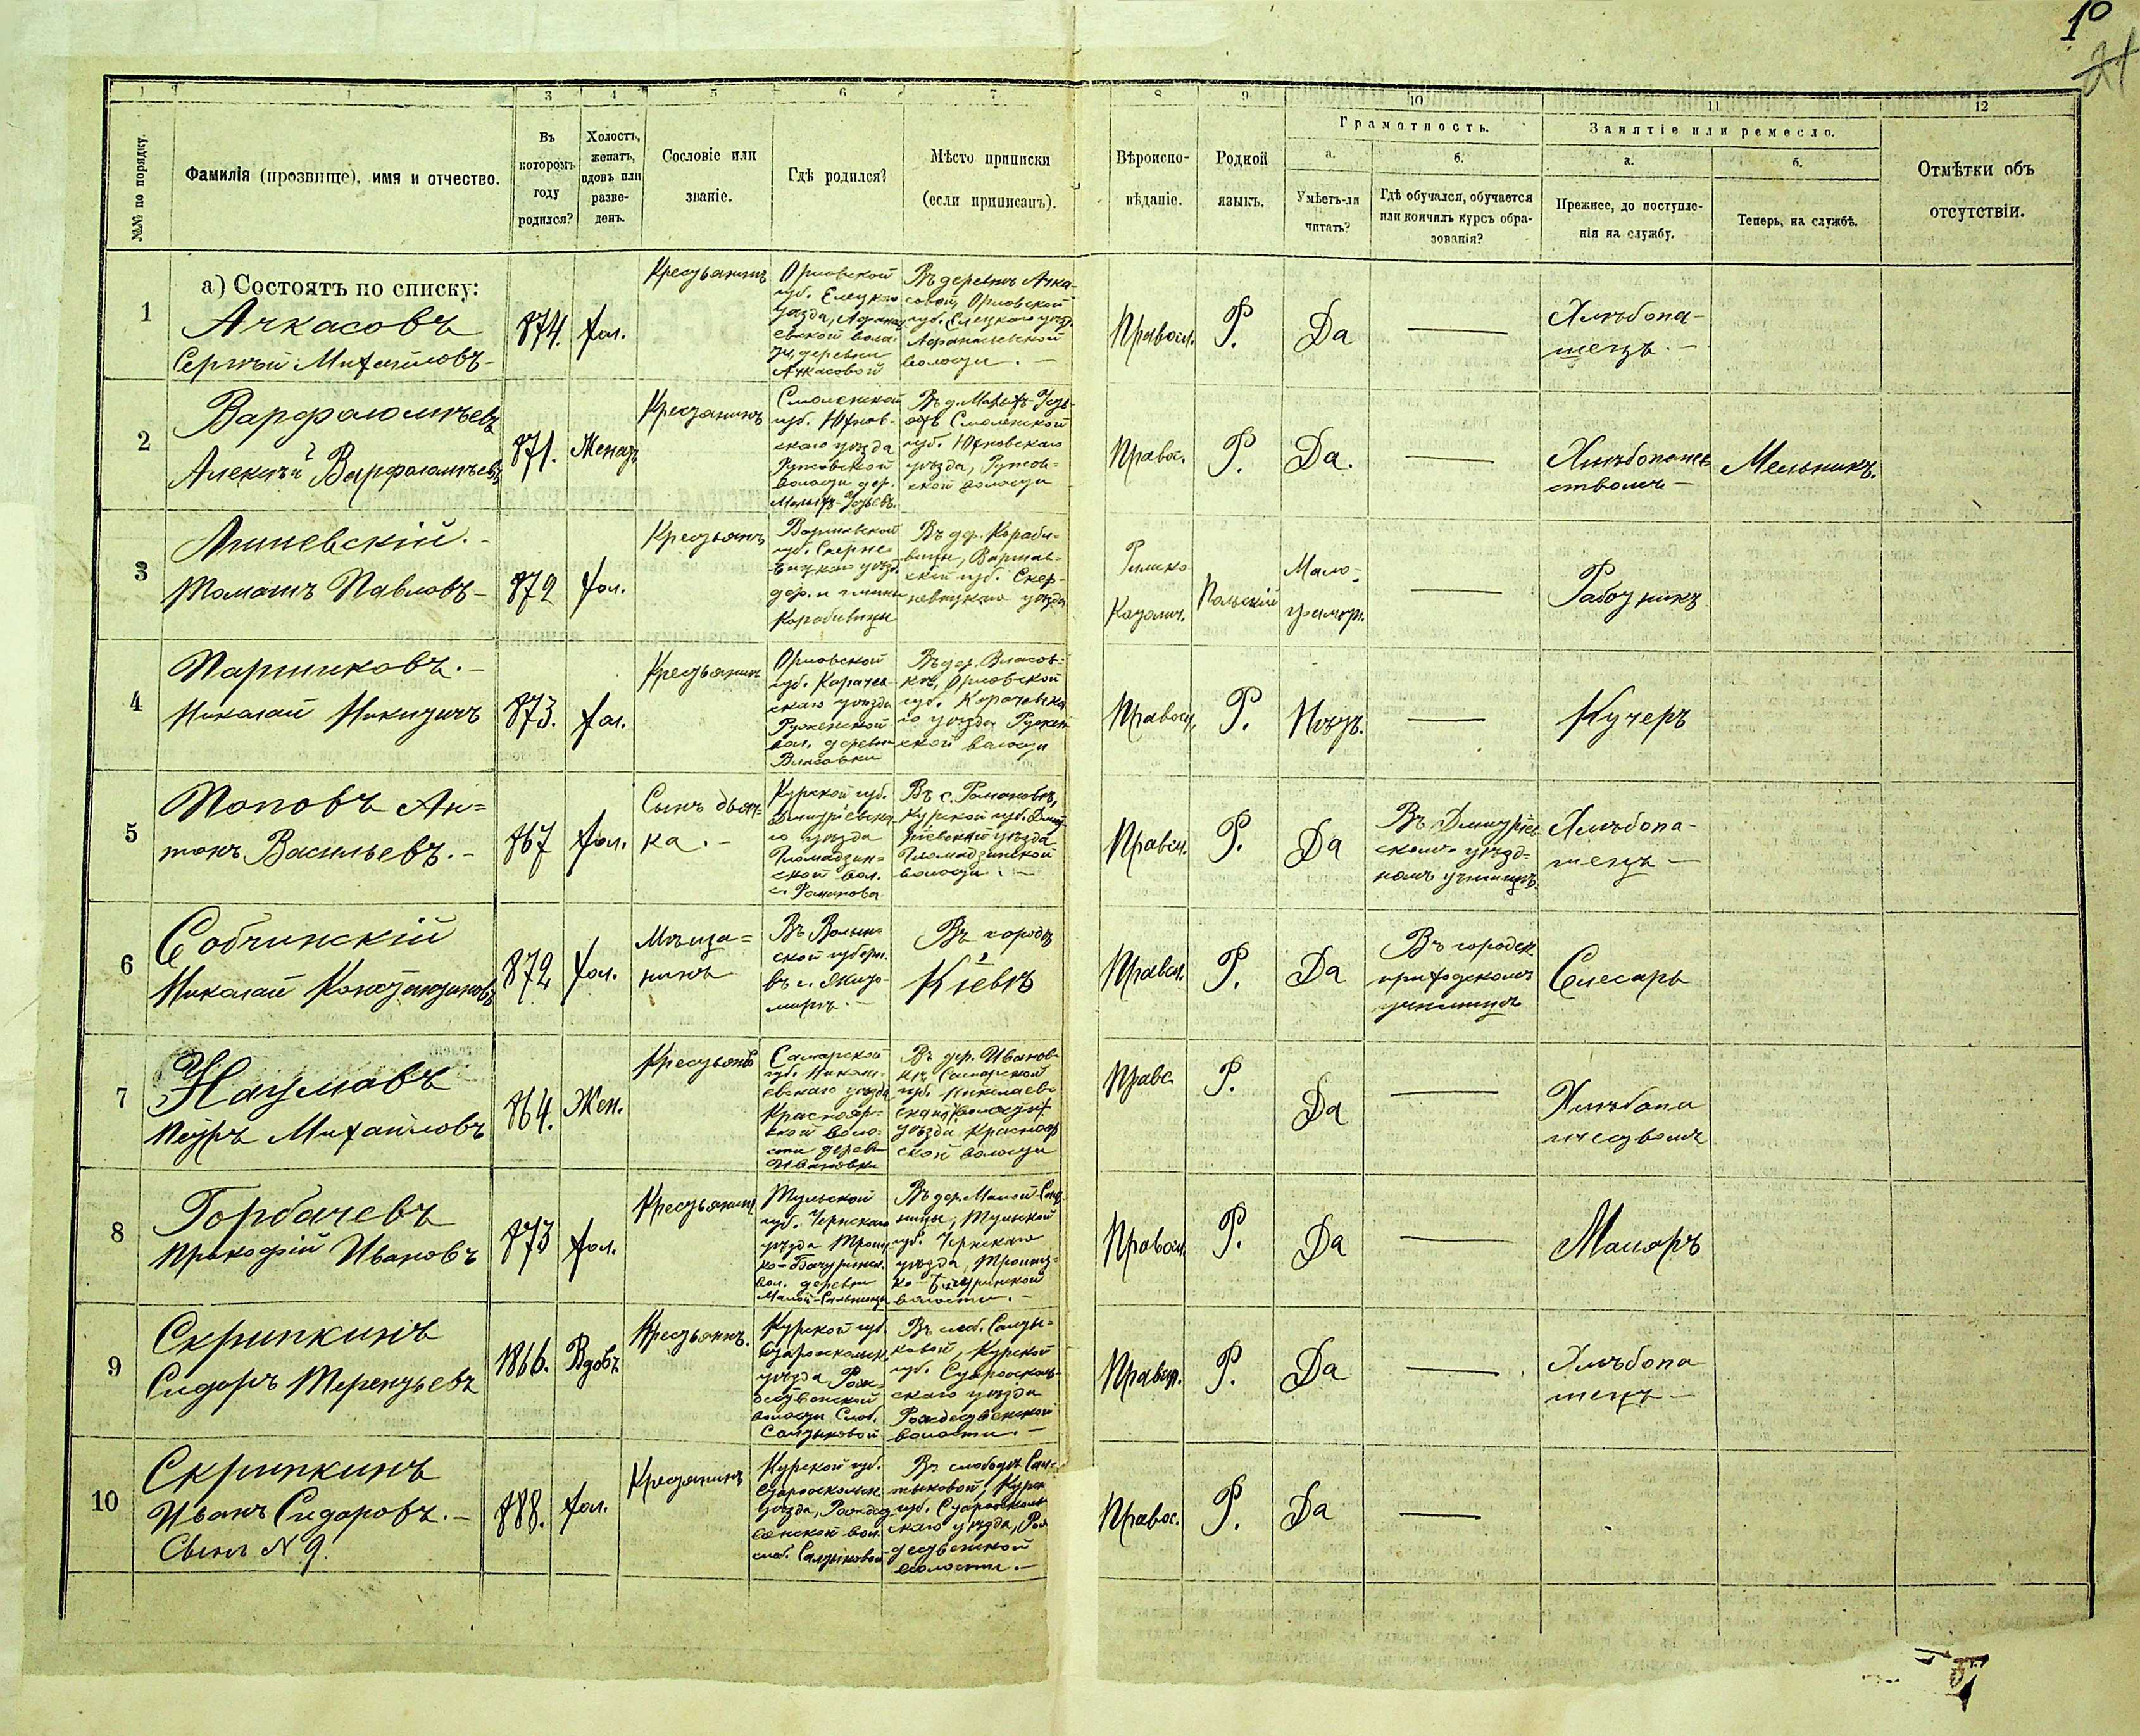 10
21
1 1 3 4 5 6 7 8 9 10 11 12
№№ по порядку.
Фамилія (прозвище), имя и отчество.
Въ
которомъ
году
родился?
Холостъ,
женатъ,
вдовъ или
разве-
денъ.
Сословіе или
званіе.
Гдѣ родился?
Мѣсто приписки
(если приписанъ).
Вѣроиспо-
вѣданіе.
Родной
языкъ.
Грамотность.
а.
Умѣетъ-ли
читать?
б.
Гдѣ обучался, обучается
или кончилъ курсъ обра-
зованія?
Занятіе или ремесло.
а.
Прежнее, до поступле-
нія на службу.
б.
Теперь, на службѣ.
Отмѣтки объ
отсутствіи.
а) Состоятъ по списку:
1
Ачкасовъ
Сергѣй Михайловъ-
874.
Хол.
Крестьянинъ
Орловской
губ. Елецкаго
уѣзда, Афанас
евской воло-
сти, деревни
Ачкасовой
Въ деревнѣ Ачка-
совой, Орловской
губ. Елецкаго уѣзд.
Афанасьевской
волости. -
Правосл.
Р.
Да
Хлѣбопа-
шецъ. -
2
Варфоломѣевъ
Алексѣй Варфоломѣевъ
871.
Женатъ
Крестьянинъ
Смоленской
губ. Юхнов-
скаго уѣзда
волости дер.
Смоленской
губ. Юхновскаго
уѣзда,
ской волости
Правос.
Р.
Да.
Хлѣбопашес
ствомъ -
Мельникъ.
3
Томашъ Павловъ-
872
Хол.
Крестьянъ
Варшавской
губ. Скерне-
вицкаго уѣзд.
дер. и гмины
Корабивицы
Въ дер. Кораби-
вицы, Варшав-
ской губ. Скер-
невицкаго уѣзда
Римско
Католич.
Польскій
Мало-
грамотн.
Работникъ
4
Паршиковъ. -
Николай Никитичъ
873.
Хол.
Крестьянинъ
Орловской
губ. Карачев-
скаго уѣзда
Руженской
вол. деревни
Власовки
Въ дер. Власов-
кѣ, Орловской
губ. Карачевска
го уѣзда Ружен-
ской волости
Правосл.
Р.
Нѣтъ.
Кучеръ
5
Поповъ Ан=
тонъ Васильевъ. -
867
Хол.
Сынъ дьяч-
ка. -
Курской губ.
Дмитріевска
го уѣзда
ской вол.
с. Романова
Въ с. Романовѣ,
Курской губ. Дмит
ріевскаго уѣзда
волости. -
Правсл.
Р.
Да
Въ Дмитріев
скомъ уѣзд-
номъ училищѣ.
Хлѣбопа-
шецъ -
6
Собчинскій
Николай Константиновъ
872
Хол.
Мѣща=
нинъ
Въ Волын-
ской губерн.
въ г. Жито-
мирѣ. -
Въ городѣ
Кіевѣ
Правсл.
Р.
Да
Въ городск.
приходскомъ
училищѣ
Слесарь
7
Наумовъ
Петръ Михайловъ
864.
Жен.
Крестьянъ
Самарской
губ. Никола-
евскаго уѣзда
Краснояр=
ской воло-
сти деревни
Ивановки
Въ дер. Иванов-
кѣ Самарской
губ. Николаев
уѣзда Краснояр
ской волости
Правс.
Р.
Да
Хлѣбопа
шествомъ
8
Горбачевъ
Прокофій Ивановъ
873
Хол.
Крестьянинъ
Тульской
губ. Чернскаго
уѣзда Троиц-
ко-Бачуринск.
вол. деревни
Въ дер. Малой
Тульской
губ. Чернскаго
уѣзда, Троиц-
ко-Бачуринской
волости. -
Правосл.
Р.
Да
Маляръ
9
Скрипкинъ
Сидоръ Терентьевъ
1866.
Вдовъ
Крестьянинъ.
Курской губ.
Старооскольск.
уѣзда Рож-
дественской
волости Слоб.
Салтыковой
Въ слоб. Салты=
ковой, Курской
губ. Староосколь-
скаго уѣзда
Рождественской
волости. -
Правосл.
Р.
Да
Хлѣбопа
шецъ -
10
Скрипкинъ
Иванъ Сидоровъ. -
Сынъ N 9.
888.
Хол.
Крестьянинъ
Курской губ.
Старооскольск
уѣзда, Рождест
венской вол.
слоб. Салтыковой
Въ слободѣ Сал-
тыковой, Курск
губ. Староосколь
скаго уѣзда, Рож
дественской
волости. -
Правос.
Р.
Да